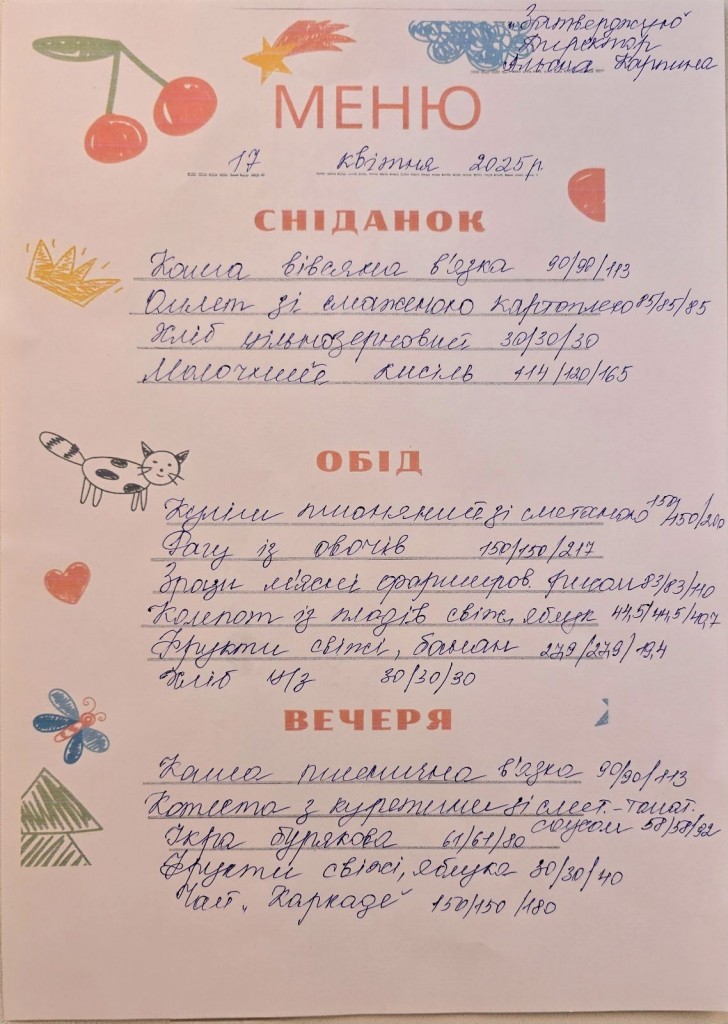 „Затверджую"
Директор
Альона Карпина
МЕНЮ
17 квітня 2025р
СНІДАНОК
Каша вівсяна в'язка 90/90/113
Омлет зі смаженою картоплею 85/85/85
Хліб цільнозерновий 30/30/30
Молочний кисіль 114/120/165
ОБІД
Куліш пшоняний зі сметаною 150/150/200
Рагу із овочів 150/150/217
Зрази м'ясні фарширов. рисом 83/83/110
Компот із плодів свіж, яблук 44,5/44,5/40,7
Фрукти свіжі, банан 27,9/27,9/19,4
Хліб ц/з 30/30/30
ВЕЧЕРЯ
Каша пшенична в'язка 90/90/113
Котлета з курятини зі смет.-томат.
соусом 58/58/92
Ікра бурякова 61/61/80
Фрукти свіжі, яблука 30/30/40
Чай „Каркаде" 150/150/180